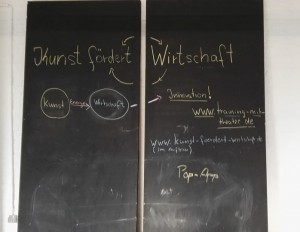 Kunst fördert Wirtschaft
Kunst
Wirtschaft
Innovation!
www.training-mit-
theater.de
www.kunst-foerdert-wirtschaft.de
(im Aufbau)